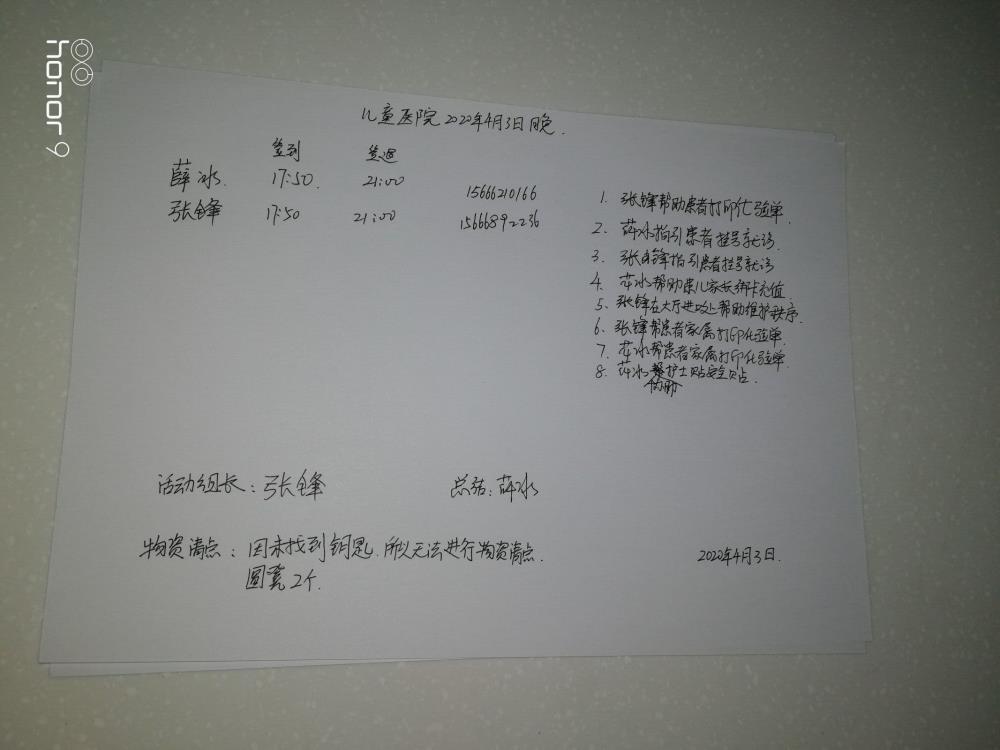 honor 9
儿童医院2022年4月3日晚.
签到 签退
薛冰. 17:50. 21:00 15666210166
张锋 17:50 21:00 15666892236
1. 张锋帮助患者打印化验单.
2. 薛冰指引患者挂号就诊.
3. 张锋指引患者挂号就诊
4. 薛冰帮助患儿家长绑卡充值.
5. 张锋在大厅进口处帮助维护秩序.
6. 张锋帮患者家属打印化验单.
7. 薛冰帮患者家属打印化验单.
8. 薛冰协助护士贴安全贴.
活动组长:张锋 总结:薛冰
物资清点:因未找到钥匙.所以无法进行物资清点.
圆凳2个.
2022年4月3日.